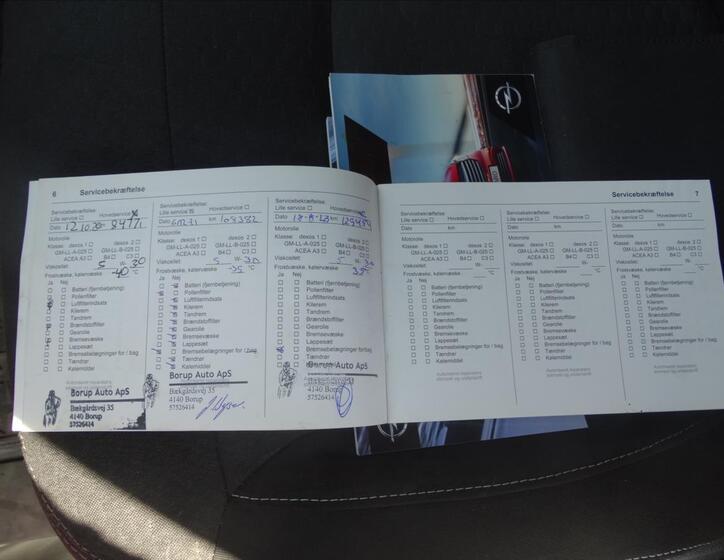 6 Servicebekræftelse
Servicebekræftelse:
Lille service Hovedservice
Dato 12.10.20 km 84771
Motorolie
Klasse: dexos 1 dexos 2
GM-LL-A-025 GM-LL-B-025
ACEA A3 B4 C3
Viskositet: 5 W- 30
Frostvæske, kølervæske
-40 °C
Ja Nej
Batteri (fjernbetjening)
Pollenfilter
Luftfilterindsats
Kilerem
Tandrem
Brændstoffilter
Gearolie
Bremsevæske
Lappesæt
Bremsebelægninger for / bag
Tændrør
Kølemiddel
Autoriseret reparatørs
Borup Auto ApS
Bækgårdsvej 35
4140 Borup
57526414
Servicebekræftelse:
Lille service Hovedservice
Dato km 108382
Motorolie
Klasse: dexos 1 dexos 2
GM-LL-A-025 GM-LL-B-025
ACEA A3 B4 C3
Viskositet: 5 W- 30
Frostvæske, kølervæske
-35 °C
Ja Nej
Batteri (fjernbetjening)
Pollenfilter
Luftfilterindsats
Kilerem
Tandrem
Brændstoffilter
Gearolie
Bremsevæske
Lappesæt
Bremsebelægninger for / bag
Tændrør
Kølemiddel
Borup Auto ApS
Bækgårdsvej 35
4140 Borup
57526414
Servicebekræftelse:
Lille service Hovedservice
Dato km
Motorolie
Klasse: dexos 1 dexos 2
GM-LL-A-025 GM-LL-B-025
ACEA A3 B4 C3
Viskositet: 5 W- 30
Frostvæske, kølervæske
Ja Nej
Batteri (fjernbetjening)
Pollenfilter
Luftfilterindsats
Kilerem
Tandrem
Brændstoffilter
Gearolie
Bremsevæske
Lappesæt
Bremsebelægninger for / bag
Tændrør
Borup Auto ApS
Bækgårdsvej 35
4140 Borup
57526414
Servicebekræftelse 7
Servicebekræftelse:
Lille service Hovedservice
Dato km
Motorolie
Klasse: dexos 1 dexos 2
GM-LL-A-025 GM-LL-B-025
ACEA A3 B4 C3
Viskositet: W-
Frostvæske, kølervæske
°C
Ja Nej
Batteri (fjernbetjening)
Pollenfilter
Luftfilterindsats
Kilerem
Tandrem
Brændstoffilter
Gearolie
Bremsevæske
Lappesæt
Bremsebelægninger for / bag
Tændrør
Kølemiddel
Autoriseret reparatørs
stempel og underskrift
Servicebekræftelse:
Lille service Hovedservice
Dato km
Motorolie
Klasse: dexos 1 dexos 2
GM-LL-A-025 GM-LL-B-025
ACEA A3 B4 C3
Viskositet: W-
Frostvæske, kølervæske
°C
Ja Nej
Batteri (fjernbetjening)
Pollenfilter
Luftfilterindsats
Kilerem
Tandrem
Brændstoffilter
Gearolie
Bremsevæske
Lappesæt
Bremsebelægninger for / bag
Tændrør
Kølemiddel
Autoriseret reparatørs
stempel og underskrift
Servicebekræftelse:
Lille service Hovedservice
Dato km
Motorolie
Klasse: dexos 1 dexos 2
GM-LL-A-025 GM-LL-B-025
ACEA A3 B4 C3
Viskositet: W-
Frostvæske, kølervæske
°C
Ja Nej
Batteri (fjernbetjening)
Pollenfilter
Luftfilterindsats
Kilerem
Tandrem
Brændstoffilter
Gearolie
Bremsevæske
Lappesæt
Bremsebelægninger for / bag
Tændrør
Kølemiddel
Autoriseret reparatørs
stempel og underskrift